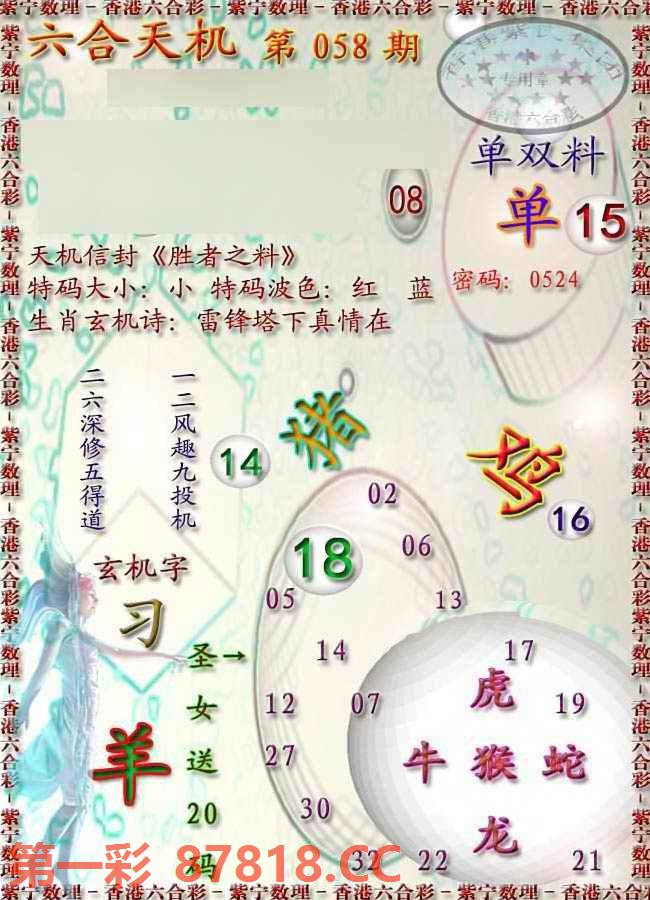 紫宁数理－香港六合彩－紫宁数理－香港六合彩－紫宁数理－香港六合彩
六合天机 第 058 期
专用章
香港六合彩
单双料
单 15
08
天机信封《胜者之料》
特码大小：小 特码波色：红 蓝
密码：0524
生肖玄机诗：雷锋塔下真情在
一二风趣九投机
二六深修五得道
猪
鸡
14
16
02
18
06
05
13
玄机字
习
14
17
虎
12
07
19
羊
圣女送20码
→
牛 猴 蛇
27
30
龙
32
22
21
第一彩 87818.CC
紫宁数理－香港六合彩－紫宁数理－香港六合彩－紫宁数理－香港六合彩